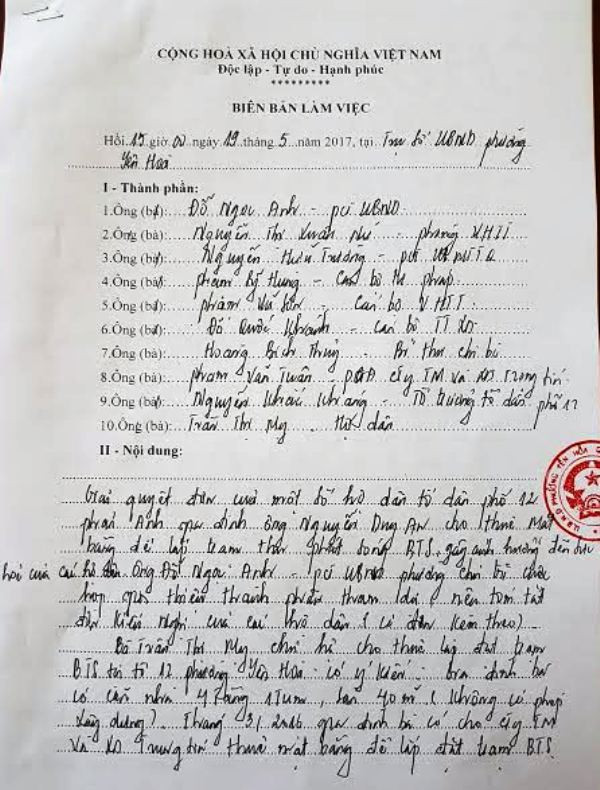 CỘNG HOÀ XÃ HỘI CHỦ NGHĨA VIỆT NAM
Độc lập - Tự do - Hạnh phúc
*********
BIÊN BẢN LÀM VIỆC
Hồi 15 giờ 00 ngày 19 tháng 5 năm 2017, tại Trụ Sở UBND phường
Yên Hoà
I - Thành phần:
1.Ông (bà): Đỗ Ngọc Anh - pct UBND
2.Ông (bà): Nguyễn Thị Xuân - phòng VHTT
3.Ông (bà): Nguyễn Hữu Trường - pct
4.Ông (bà): phạm Hưng - Cán bộ tư pháp
5.Ông (bà): phạm - Cán bộ VHTT
6.Ông (bà): Đỗ Quốc Khánh - Cán bộ TTXD
7.Ông (bà): Hoàng Bích Thủy - Bí thư chi bộ
8.Ông (bà): phạm Văn Tuân - cty TM và XD Trung tín
9.Ông (bà): Nguyễn Khắc Khang - Tổ trưởng tổ dân phố 12
10.Ông (bà): Trần Thị My - Hộ dân
II - Nội dung:
Giải quyết đơn của một số hộ dân tổ dân phố 12
phản Ánh gia đình ông Nguyễn Duy An cho thuê Mặt
bằng để lắp trạm thu phát sóng BTS, gây ảnh hưởng đến sức
hoẻ của các hộ dân. Ông Đỗ Ngọc Anh - pct UBND phường chủ trì cuộc
họp giới thiệu thành phần tham dự (nêu tóm tắt
đơn kiến nghị của các hộ dân (có đơn kèm theo).
Bà Trần Thị My chủ hộ cho thuê lắp đặt trạm
BTS tại tổ 12 phường Yên Hoà có ý kiến: Gia đình bà
có căn nhà 4 tầng 1 tum, 40m² (Không có phép
xây dựng). Tháng 3/2016 gia đình bà có cho cty TM
và XD Trung tín thuê mặt bằng để lắp đặt trạm BTS